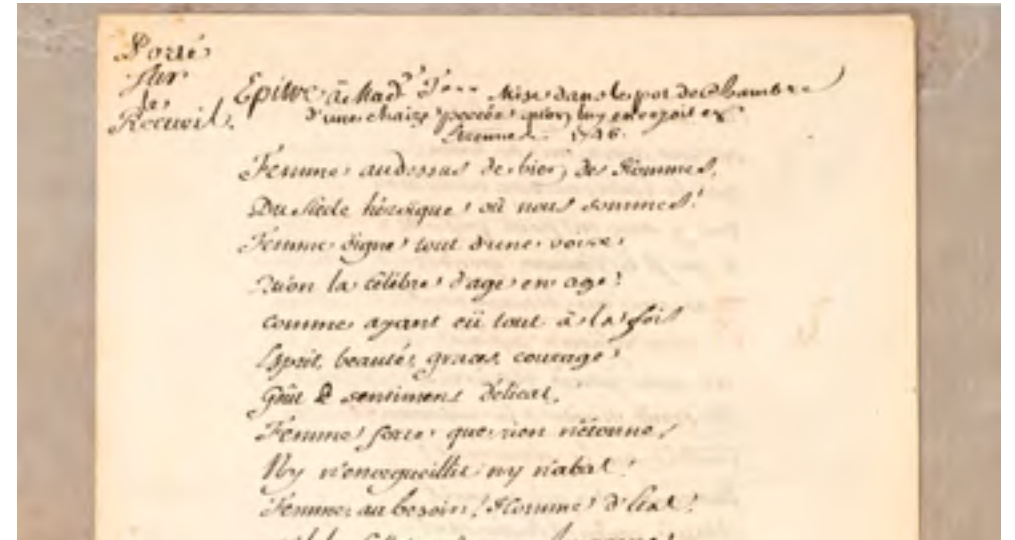 Porté
sur
le
Recueil.
Epitre à Mad.e T... Mise dans le pot de Chambre
d'une chaise percée qu'on luy envoyoit en
Etrennes. 1746.
Femme au dessus de bien des Hommes,
Du siècle héroïque où nous sommes!
Femme digne tout d'une voix
Qu'on la célébre d'age en age!
Comme ayant eü tout à la fois
Esprit, beauté, graces, courage
Goût & sentiment délicat,
Femme forte que rien n'étonne,
Ny n'enorgueillit ny n'abat!
Femme au besoin! Homme d'Etat!